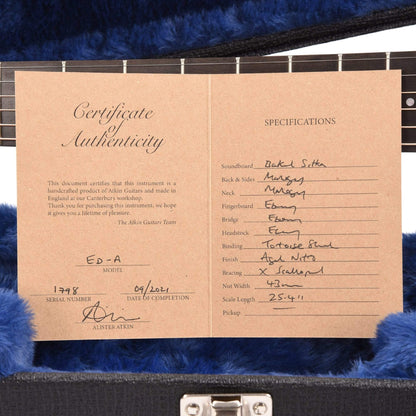 Certificate
of
Authenticity
This document certifies that this instrument is a
handcrafted product of Atkin Guitars and made in
England at our Canterbury workshop.
Thank you for purchasing this instrument, we hope
it gives you a lifetime of pleasure.
The Atkin Guitars Team
ED-A
MODEL
1798 09/2021
SERIAL NUMBER DATE OF COMPLETION
ALISTER ATKIN
SPECIFICATIONS
Soundboard Baked Sitka
Back & Sides Mahogany
Neck Mahogany
Fingerboard Ebony
Bridge Ebony
Headstock Ebony
Binding Tortoise Shell
Finish Aged Nitro
Bracing X Scalloped
Nut Width 43mm
Scale Length 25.4"
Pickup